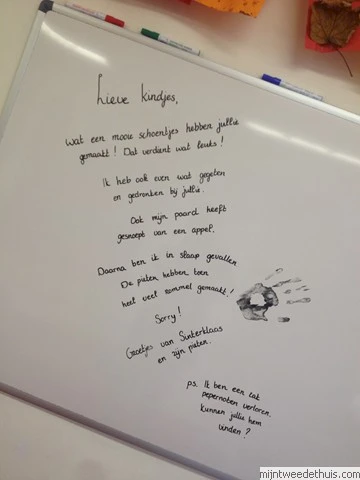 Lieve kindjes,
Wat een mooie schoentjes hebben jullie
gemaakt! Dat verdient wat leuks!
Ik heb ook even wat gegeten
en gedronken bij jullie.
Ook mijn paard heeft
gesnoept van een appel.
Daarna ben ik in slaap gevallen
De pieten hebben toen
heel veel rommel gemaakt!
Sorry!
Groetjes van Sinterklaas
en zijn pieten.
ps. Ik ben een zak
pepernoten verloren.
Kunnen jullie hem
vinden?
mijntweedethuis.com